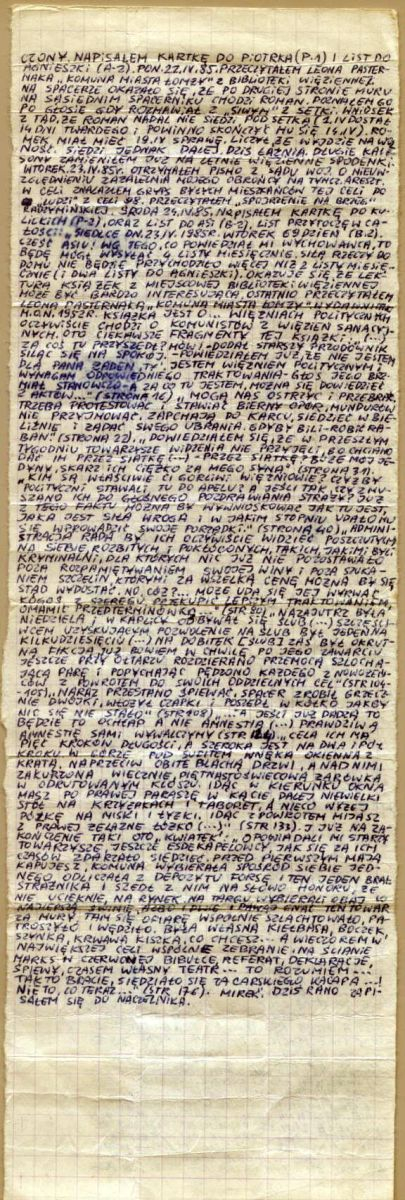 CZONY. NAPISAŁEM KARTKĘ DO PIOTRKA (P-1) I LIST DO
AGNIESZKI (A-2). PON. 22.IV.85. PRZECZYTAŁEM LEONA PASTER-
NAKA „KOMUNA MIASTA ŁOMŻY” Z BIBLIOTEKI WIĘZIENNEJ.
NA SPACERZE OKAZAŁO SIĘ, ŻE PO DRUGIEJ STRONIE MURU
NA SĄSIEDNIM SPACERNIKU CHODZI ROMAN. POZNAŁEM GO
PO GŁOSIE GDY ROZMAWIAŁ Z „SIWYM” Z SETKI. WNIOSEK
Z TĄD, ŻE ROMAN NADAL NIE SIEDZI POD SETKĄ (21.IV DOSTAŁ
14 DNI TWARDEGO I POWINNO SKOŃCZYĆ MU SIĘ 14.IV). RO-
MEK MIAŁ MIEĆ 19.IV SPRAWĘ. LICZYŁ, ŻE WYJDZIE NA WOL
NOŚĆ. SIEDZI JEDNAK DALEJ. DZIŚ ŁAŹNIA. DŁUGIE KALE-
SONY ZAMIENIŁEM JUŻ NA LETNIE WIĘZIENNE SPODENKI.
WTOREK. 23.IV.85R. OTRZYMAŁEM PISMO Z SĄDU WOJ. O NIEUW-
ZGLĘDNIENIU ZAŻALENIA MOJEGO OBROŃCY NA TYMCZ. ARESZT.
W CELI ZNALAZŁEM GRYPS BYŁYCH MIESZKAŃCÓW TEJ CELI DO
„LUDZI” Z CELI 98. PRZECZYTAŁEM „SPOJRZENIE NA BRZEG”
RADZYMIŃSKIEJ. ŚRODA 24.IV.85R. NAPISAŁEM KARTKĘ DO KU-
LICKICH (P-2), ORAZ LIST DO ASI (B-2). LIST PRZYTOCZĘ W CA-
ŁOŚCI: „SIEDLCE DN. 23.IV.1985R. WTOREK 69 DZIEŃ (B-2).
CZEŚĆ ASIU! WG TEGO, CO POWIEDZIAŁ MI WYCHOWAWCA, TO
BĘDĘ MÓGŁ WYSYŁAĆ 4 LISTY MIESIĘCZNIE. SIŁĄ RZECZY DO
DOMU NIE BĘDZIE PRZYCHODZIŁO WIĘCEJ NIŻ 2 LISTY MIESIĘ-
CZNIE (I DWA LISTY DO AGNIESZKI). OKAZUJE SIĘ, ŻE LEK-
TURA KSIĄŻEK Z MIEJSCOWEJ BIBLIOTEKI WIĘZIENNEJ
MOŻE BYĆ BARDZO INTERESUJĄCA. OSTATNIO PRZECZYTAŁEM
LEONA PASTERNAKA „KOMUNA MIASTA ŁOMŻY” WYDAWNICTWO
M.O.N. 1952R. KSIĄŻKA JEST O... WIĘŹNIACH POLITYCZNYCH,
OCZYWIŚCIE CHODZI O KOMUNISTÓW Z WIĘZIEŃ SANACYJ-
NYCH. OTO CIEKAWSZE FRAGMENTY TEJ KSIĄŻKI: „(...)
ZA COŚ TU PRZYSZEDŁ? MÓW! – DODAŁ STARSZY PRZODOWNIK
SILĄC SIĘ NA SPOKÓJ. – POWIEDZIAŁEM JUŻ, ŻE NIE JESTEM
DLA PANA ŻADEN „TY”. JESTEM WIĘŹNIEM POLITYCZNYM I
WYMAGAM ODPOWIEDNIEGO TRAKTOWANIA – GŁOS JEGO BRZ-
MIAŁ STANOWCZO – A ZA CO TU JESTEM, MOŻNA SIĘ DOWIEDZIEĆ
Z AKTÓW...” (STRONA 16) „ MOGĄ NAS OSTRZYC I PRZEBRAĆ.
TRZEBA PROTESTOWAĆ, STAWIAĆ BIERNY OPÓR, MUNDURÓW
NIE PRZYJMOWAĆ. ZAPCHAJĄ DO KARCU, SIEDZIEĆ W BIE-
LIŹNIE I ŻĄDAĆ SWEGO UBRANIA. GDYBY BILI – ROBIĆ RA-
BAN.” (STRONA 22). „DOWIEDZIAŁEM SIĘ, ŻE W PRZESZŁYM
TYGODNIU TOWARZYSZE WIDZENIA NIE PRZYJĘLI, BO CHCIANO
DAĆ IM PRZEZ SIATKĘ (...) – PRZEZ SIATKĘ? BOŻE MÓJ JE-
DYNY, SKARŻ ICH CIĘŻKO ZA MEGO SYNA” (STRONA 31).
„KIM SĄ WŁAŚCIWIE CI GORLIWI WIĘŹNIOWIE? CZYŻBY
POLITYCZNI STAWALI TU DO APELU? A JEŚLI TAK, CZY ZMU-
SZANO ICH DO GŁOŚNEGO POZDRAWIANIA STRAŻY? JUŻ
Z TEGO FAKTU MOŻNA BY WYWNIOSKOWAĆ JAK TU JEST,
JAKA JEST SIŁA WROGA I W JAKIM STOPNIU UDAŁO MU
SIĘ WPROWADZIĆ SWOJE PORZĄDKI.” (STRONA 40). „ADMINI-
STRACJA RADA BY ICH OCZYWIŚCIE WIDZIEĆ POSZCZUTYCH
NA SIEBIE, ROZBITYCH I POKŁÓCONYCH, TAKICH, JAKIMI BYLI
KRYMINALNI, DLA KTÓRYCH NIC JUŻ NIE POZOSTAWAŁO
POZA ROZPAMIĘTYWANIEM SWOJEJ WINY I POZA SZUKA-
NIEM SZCZELIN, KTÓRYMI ZA WSZELKĄ CENĘ MOŻNA BY SIĘ
STĄD WYDOSTAĆ. NO, CÓŻ?... MOŻE UDA SIĘ JEJ WYRWAĆ
KOGOŚ Z SZEREGU, PRZEKUPIĆ LEPSZYM TRAKTOWANIEM,
OMAMIĆ PRZEDTERMINÓWKĄ.” (STR 80) „NAZAJUTRZ BYŁA
NIEDZIELA I W KAPLICY ODBYWAŁ SIĘ ŚLUB (...) SZCZĘŚLI-
WCEM UZYSKUJĄCYM POZWOLENIE NA ŚLUB BYŁ JEDEN NA
KILKUDZIESIĘCIU (...) NA DOBITEK ŚLUB ZAŚ BYŁ OKRUT-
NĄ FIKCJĄ, JUŻ BOWIEM W CHWILĘ PO JEGO ZAWARCIU,
JESZCZE PRZY OŁTARZU ROZDZIERANO PRZEMOCĄ SZLOCHA-
JĄCĄ PARĘ I POPYCHAJĄC PĘDZONO KAŻDEGO Z NOWOŻEŃ-
CÓW Z POWROTEM DO SWOICH ODDZIELNYCH CEL” (STR 104-
-105). „NARAZ PRZESTANO ŚPIEWAĆ, SPACER ZROBIŁ GRZECZ-
NIE DWÓJKI, WŁOŻYŁ CZAPKI I POSZEDŁ W KÓŁKO JAKBY
NIC SIĘ NIE STAŁO” (STR 108). „... A JEŚLI JUŻ DADZĄ TO
BĘDZIE TO OCHŁAP, NIE AMNESTIA (...) PRAWDZIWĄ
AMNESTIĘ SAMI WYWALCZYMY (STR 124). „CELA ICH MA
PIĘĆ KROKÓW DŁUGOŚCI, A SZEROKA JEST NA DWA I PÓŁ
KROKU. W GÓRZE POD SUFITEM WNĘKA OKIENNA Z
KRATĄ, NAPRZECIW OBITE BLACHĄ DRZWI, A NAD NIMI
ZAKURZONA WIECZNIE, PIĘTNASTOŚWIECOWA ŻARÓWKA
W ODRUTOWANYM KLOSZU. IDĄC W KIERUNKU OKNA
MASZ PO PRAWEJ PARASZĘ W KĄCIE, DALEJ NIEWIELKI
STÓŁ NA KRZYŻAKACH I TABORET, A NIECO WYŻEJ
PÓŁKĘ NA MISKI I ŁYŻKI. IDĄC Z POWROTEM MIJASZ
Z PRAWEJ ŻELAZNE ŁÓŻKO (...)”. (STR 133). I JUŻ NA ZA-
KOŃCZENIE TAKI OTO „KWIATEK”. „OPOWIADALI MI STARZY
TOWARZYSZE JESZCZE ESDEKAPELOWCY, JAK SIĘ ZA ICH
CZASÓW ZDARZAŁO SIEDZIEĆ. PRZED PIERWSZYM MAJA
KAPUJESZ, KOMUNA WYBIERAŁA SPOŚRÓD SIEBIE JED-
NEGO, ODLICZAŁA Z DEPOZYTU FORSĘ I TEN JEDEN BRAŁ
STRAŻNIKA I SZEDŁ Z NIM NA SŁOWO HONORU, ŻE
NIE UCIEKNIE, NA RYNEK. NA TARGU WYBIERALI OBAJ CO
NAJLEPSZĄ ŚWINIĘ, ALBO I DWIE I DALEJ GNAĆ TEN TOWAR
ZA MURY. TAM SIĘ OFIARĘ WSPÓLNIE SZLACHTOWAŁO, PA-
TROSZYŁO I WĘDZIŁO. BYŁA WŁASNA KIEŁBASA, BOCZEK,
SZYNKA, KRWAWA KISZKA, CO CHCESZ. A WIECZOREM W
NAJWIĘKSZEJ CELI WSPÓLNE ZEBRANIE: NA ŚCIANIE
MARKS W CZERWONEJ BIBUŁCE, REFERAT, DEKLARACJE,
ŚPIEWY, CZASEM WŁASNY TEATR... TO ROZUMIEM...!
TAK TO BRACIE, SIEDZIAŁO SIĘ ZA CARSKIEGO KACAPA...!
NIE TO, CO TERAZ...” (STR 176). MIREK. DZIŚ RANO ZAPI-
SAŁEM SIĘ DO NACZELNIKA.